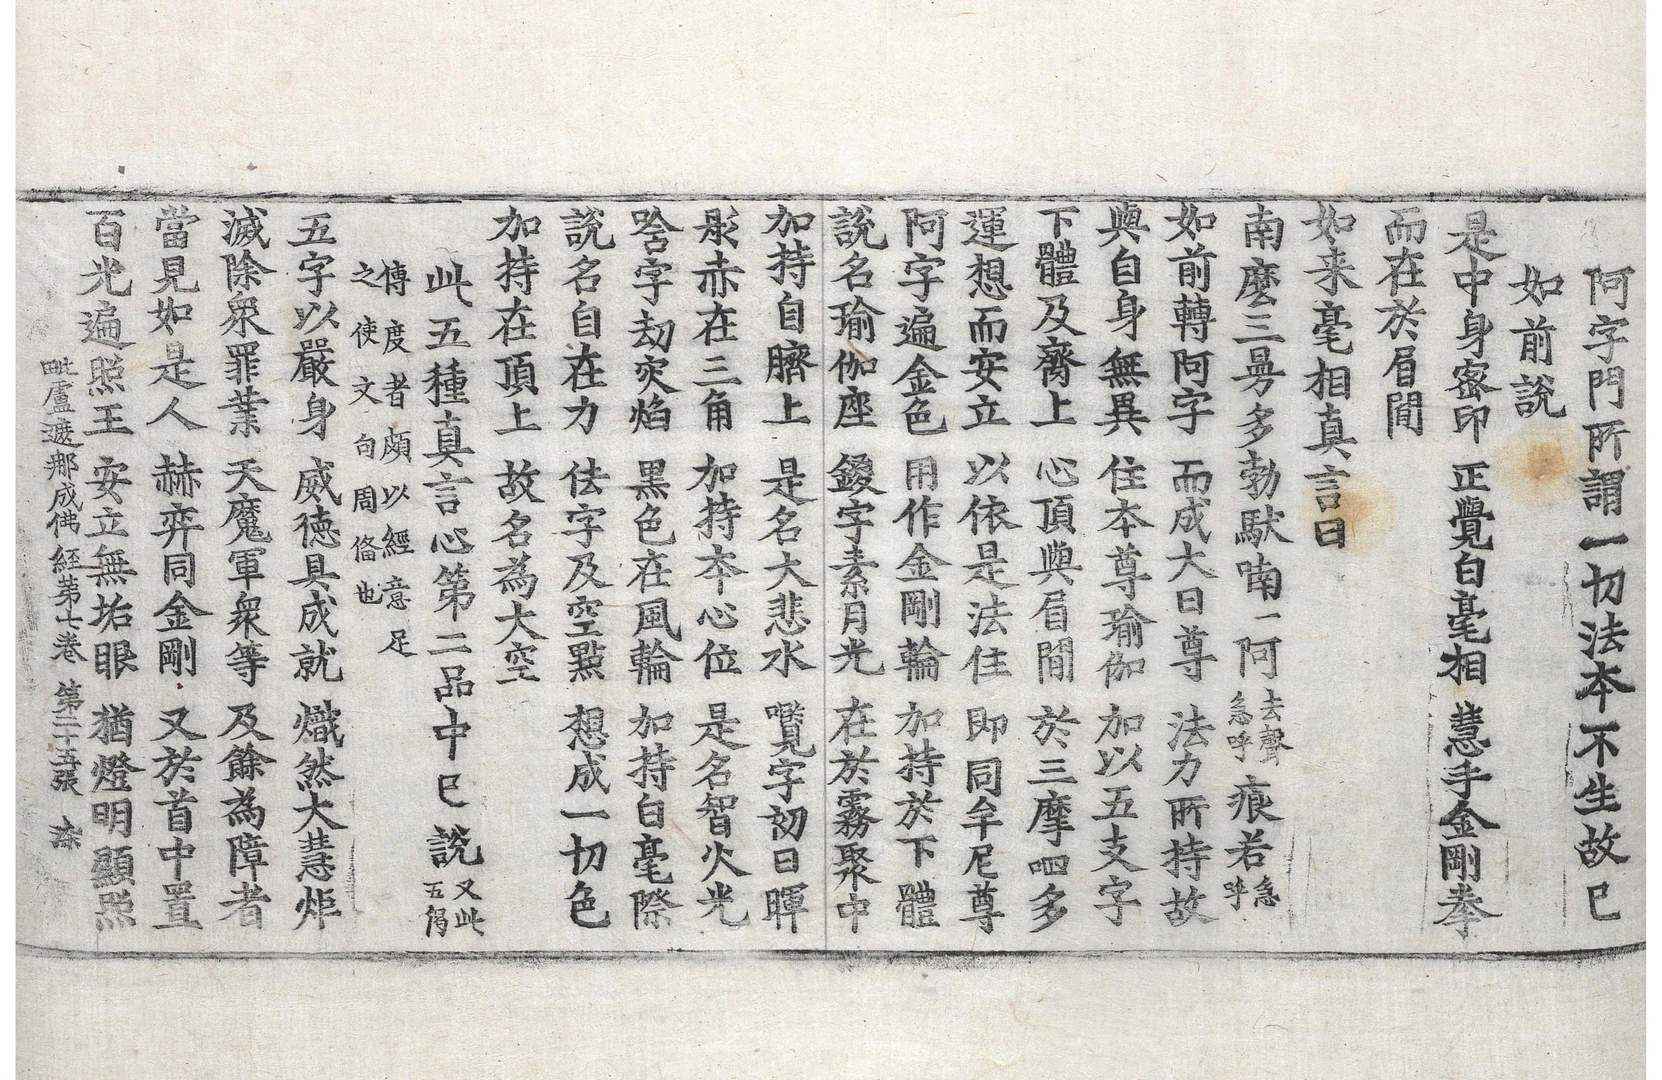 阿字門所謂一切法本不生故已
如前說
是中身密印　正覺白毫相　慧手金剛拳
而在於眉間
如来毫相真言曰
南麼三曼多勃馱喃一阿去聲急呼痕若急呼
如前轉阿字　而成大日尊　法力所持故
與自身無異　住本尊瑜伽　加以五支字
下體及齎上　心頂與眉間　於三摩呬多
運想而安立　以依是法住　即同牟尼尊
阿字遍金色　用作金剛輪　加持於下體
說名瑜伽座　鑁字素月光　在於霧聚中
加持自臍上　是名大悲水　㘕字初日暉
彤赤在三角　加持本心位　是名智火光
唅字劫灾焰　黑色在風輪　加持白毫際
說名自在力　佉字及空點　想成一切色
加持在頂上　故名為大空
此五種真言心第二品中已說又此五偈
傳度者頗以經意足
之使文句周俻也
五字以嚴身　威德具成就　熾然大慧炬
滅除衆罪業　天魔軍衆等　及餘為障者
當見如是人　赫弈同金剛　又於首中置
百光遍照王　安立無垢眼　猶燈明顯照
毗盧遮那成佛經第七卷　第二十五張　染